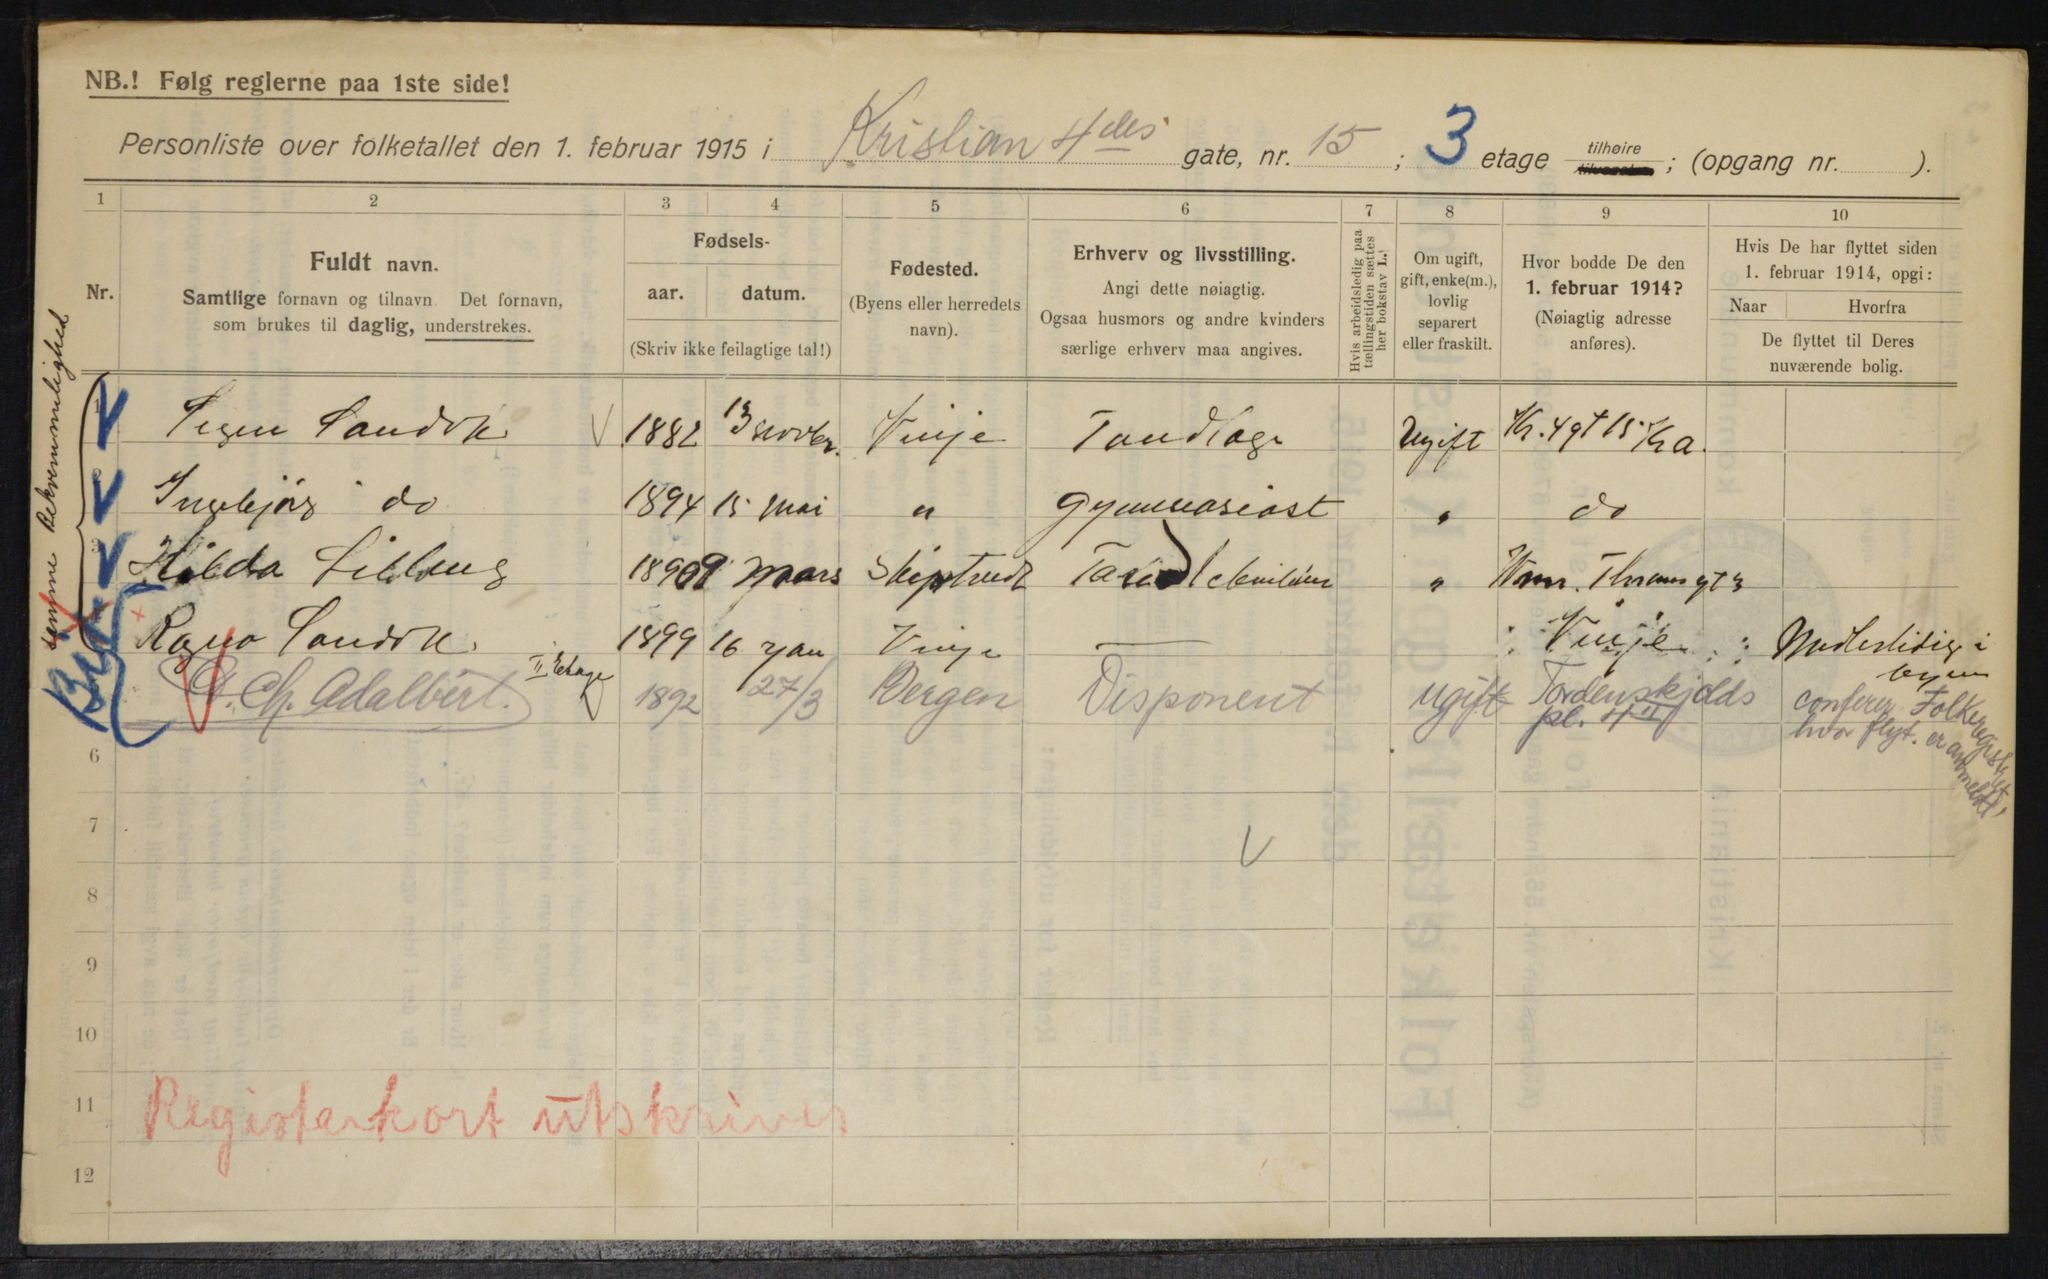 NB.! Følg reglerne paa 1ste side!
Personliste over folketallet den 1. februar 1915 i Kristian 4des gate, nr. 15 ; 3 etage tilhøire ; (opgang nr. ).
1 2 3 4 5 6 7 8 9 10
Nr.
Fuldt navn.
Samtlige fornavn og tilnavn Det fornavn,
som brukes til daglig, understrekes.
Fødsels-
aar. datum.
(Skriv ikke feilagtige tal!)
Fødested.
(Byens eller herredets
navn).
Erhverv og livsstilling.
Angi dette nøiagtig.
Ogsaa husmors og andre kvinders
særlige erhverv maa angives.
Hvis arbeidsledig paa
tællingstiden sættes
her bokstav L.!
Om ugift,
gift, enke(m.),
lovlig
separert
eller fraskilt.
Hvor bodde De den
1. februar 1914?
(Nøiagtig adresse
anføres).
Hvis De har flyttet siden
1. februar 1914, opgi:
Naar Hvorfra
De flyttet til Deres
nuværende bolig.
samme Bekvemmelighed
1 Sandvik 1882 13 novbr. Vinje Tandlæge Ugift Kr. 4 gt 15 Kra.
2 Ingebjörg do 1894 15 mai " Gymnasiast " do
3 Hilda 1890 9 mars Skiptvedt " Thranesgt
Ragna Sandvik 1899 16 jan Vinje — Vinje Midlertidig i
byen
Ch. Adalbert. II Etage 1892 27/3 Bergen Disponent ugift Tordenskjolds
pl. 4 II
conferer Folkeregistret
hvor flyt. er anmeldt
6
7
8
9
10
11
Registerkort utskrives
12